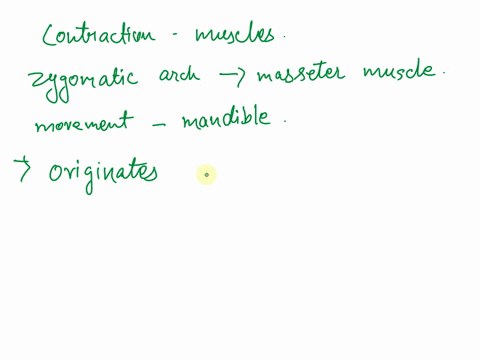 Contraction - muscles.
Zygomatic arch → masseter muscle.
movement - mandible.
→ Originates